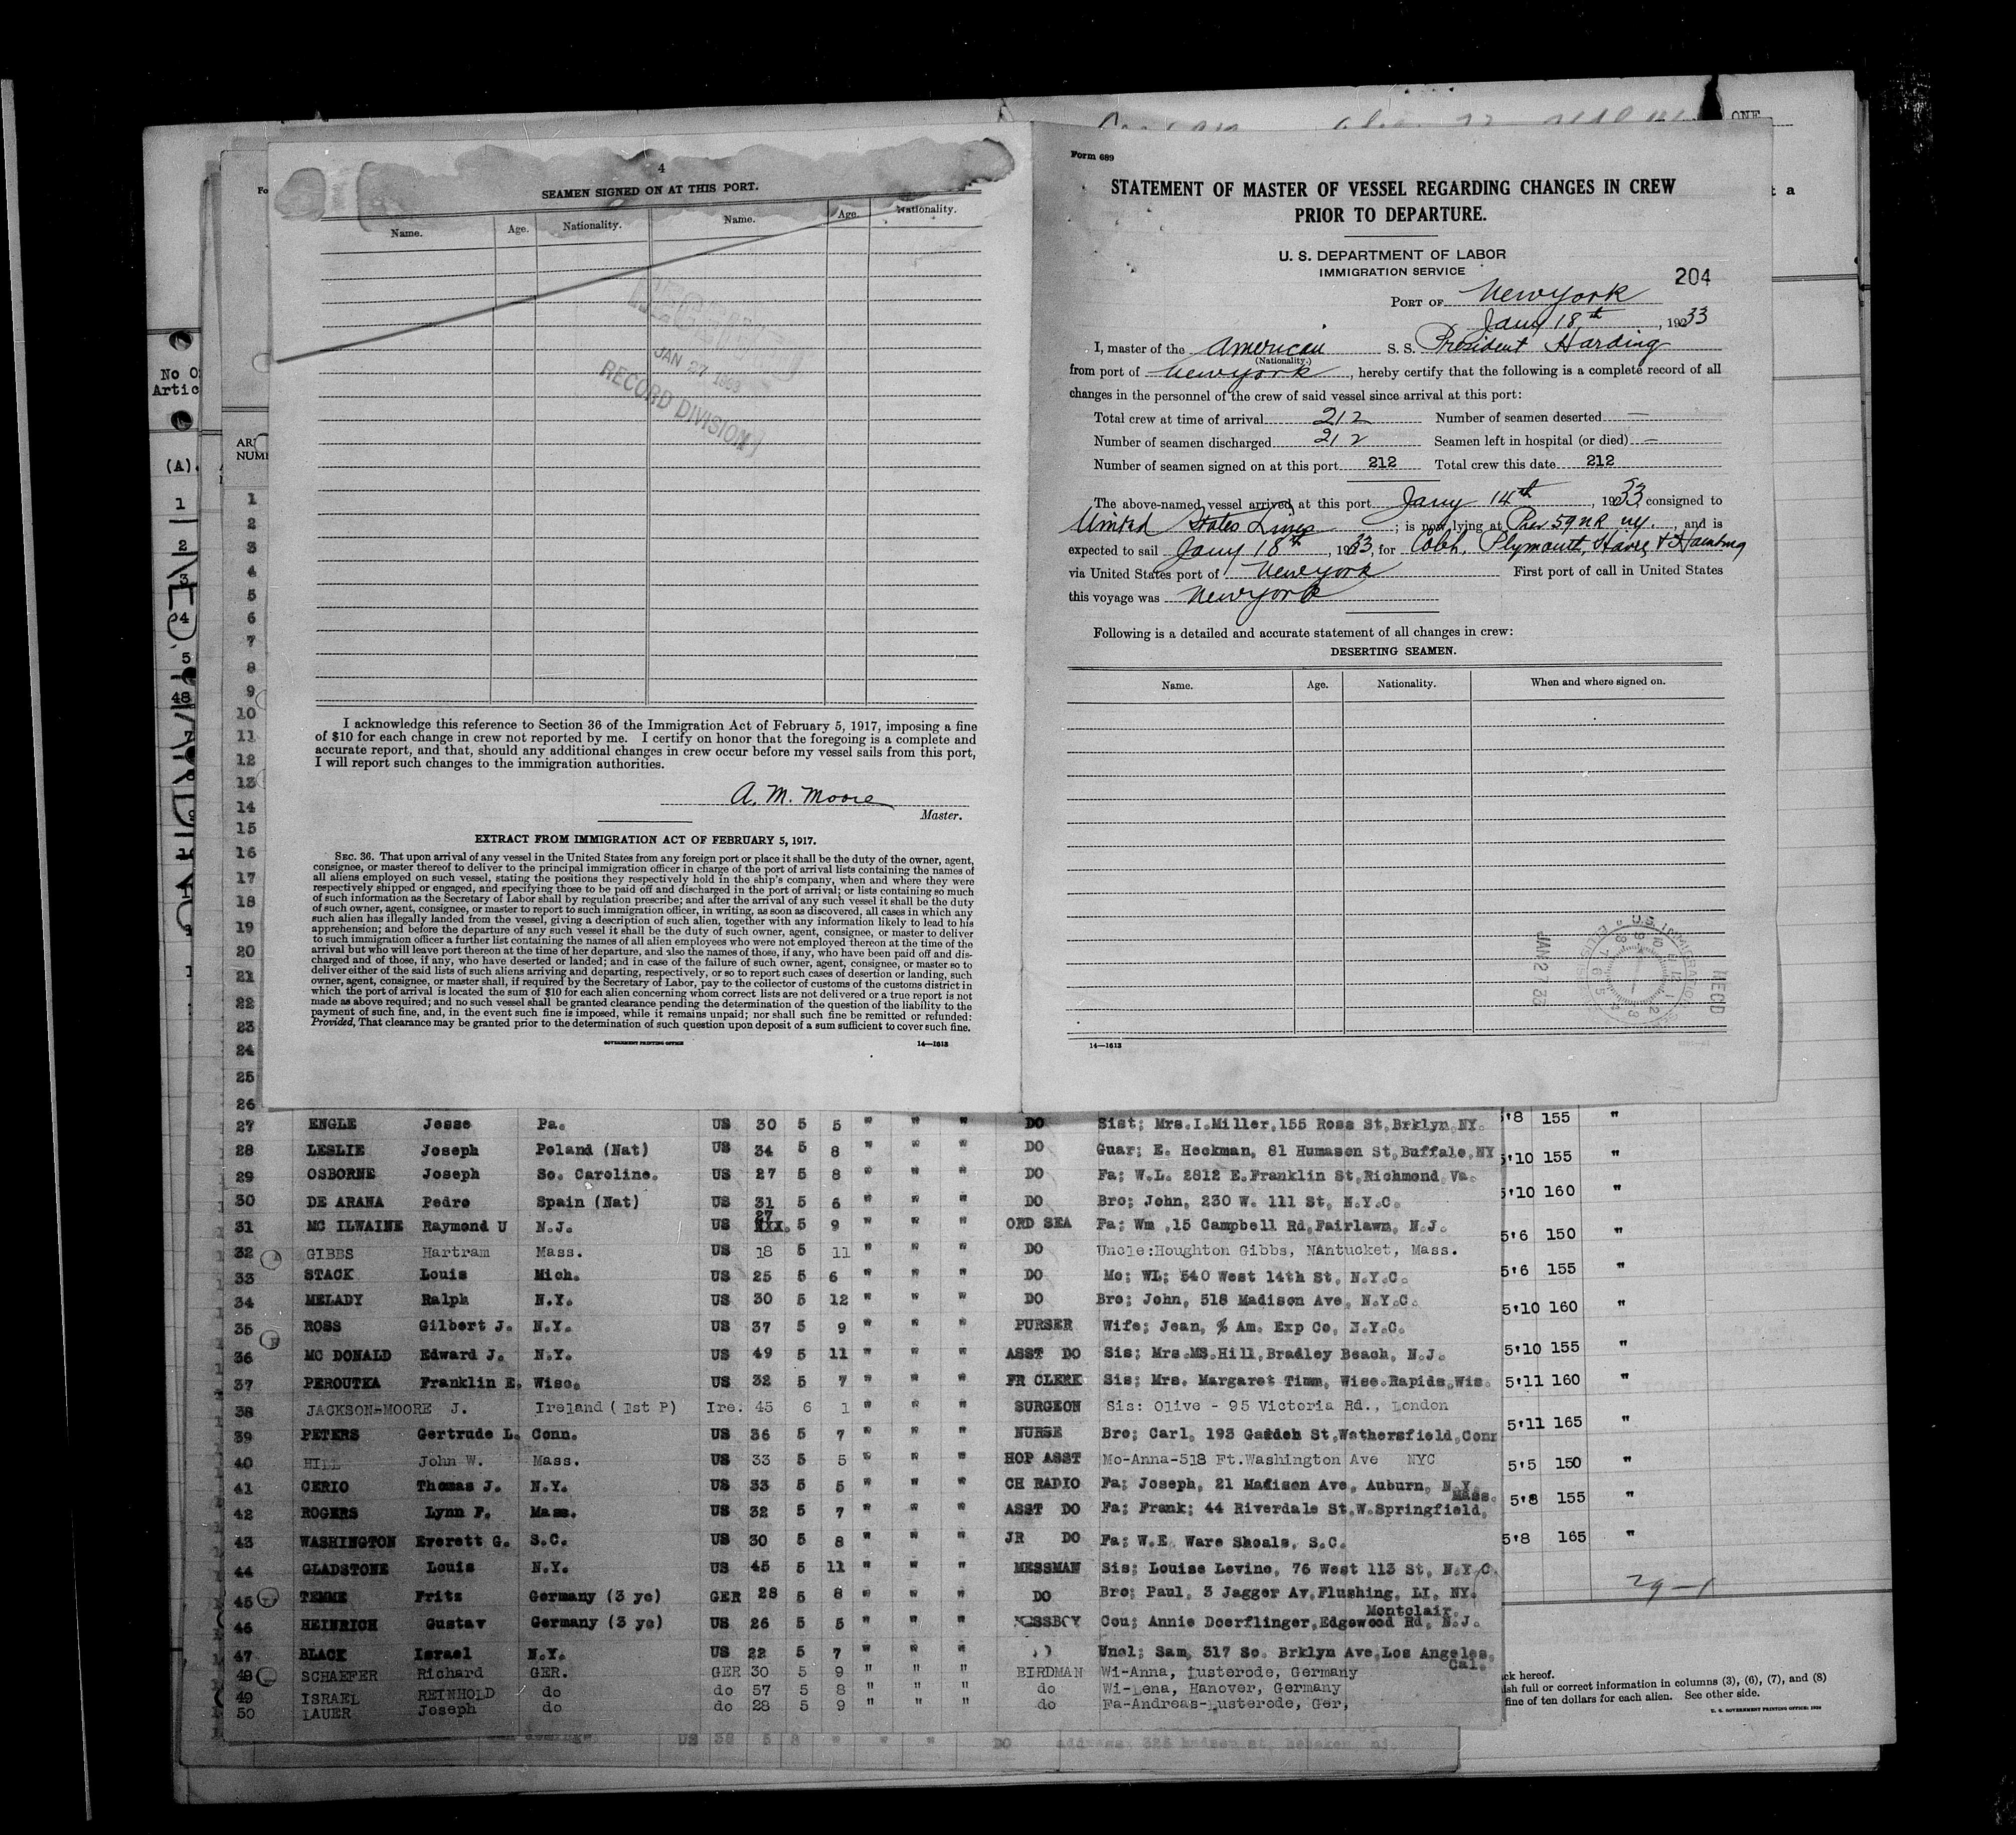 4
SEAMEN SIGNED ON AT THIS PORT.
Name. Age. Nationality. Name. Age. Nationality.
JAN 27 1933
RECORD DIVISION
I acknowledge this reference to Section 36 of the Immigration Act of February 5, 1917, imposing a fine
of $10 for each change in crew not reported by me. I certify on honor that the foregoing is a complete and
accurate report, and that, should any additional changes in crew occur before my vessel sails from this port,
I will report such changes to the immigration authorities.
A. M. Moore
Master.
EXTRACT FROM IMMIGRATION ACT OF FEBRUARY 5, 1917.
SEC. 36. That upon arrival of any vessel in the United States from any foreign port or place it shall be the duty of the owner, agent,
consignee, or master thereof to deliver to the principal immigration officer in charge of the port of arrival lists containing the names of
all aliens employed on such vessel, stating the positions they respectively hold in the ship's company, when and where they were
respectively shipped or engaged, and specifying those to be paid off and discharged in the port of arrival; or lists containing so much
of such information as the Secretary of Labor shall by regulation prescribe; and after the arrival of any such vessel it shall be the duty
of such owner, agent, consignee, or master to report to such immigration officer, in writing, as soon as discovered, all cases in which any
such alien has illegally landed from the vessel, giving a description of such alien, together with any information likely to lead to his
apprehension; and before the departure of any such vessel it shall be the duty of such owner, agent, consignee, or master to deliver
to such immigration officer a further list containing the names of all alien employees who were not employed thereon at the time of the
arrival but who will leave port thereon at the time of her departure, and also the names of those, if any, who have been paid off and dis-
charged and of those, if any, who have deserted or landed; and in case of the failure of such owner, agent, consignee, or master so to
deliver either of the said lists of such aliens arriving and departing, respectively, or so to report such cases of desertion or landing, such
owner, agent, consignee, or master shall, if required by the Secretary of Labor, pay to the collector of customs of the customs district in
which the port of arrival is located the sum of $10 for each alien concerning whom correct lists are not delivered or a true report is not
made as above required; and no such vessel shall be granted clearance pending the determination of the question of the liability to the
payment of such fine, and, in the event such fine is imposed, while it remains unpaid; nor shall such fine be remitted or refunded:
Provided, That clearance may be granted prior to the determination of such question upon deposit of a sum sufficient to cover such fine.
GOVERNMENT PRINTING OFFICE 14—1613
Form 689
STATEMENT OF MASTER OF VESSEL REGARDING CHANGES IN CREW
PRIOR TO DEPARTURE.
U. S. DEPARTMENT OF LABOR
IMMIGRATION SERVICE
204
PORT OF New York
Jany 18th, 1933
I, master of the American S. S. President Harding
(Nationality.)
from port of New York, hereby certify that the following is a complete record of all
changes in the personnel of the crew of said vessel since arrival at this port:
Total crew at time of arrival 212 Number of seamen deserted —
Number of seamen discharged 212 Seamen left in hospital (or died) —
Number of seamen signed on at this port 212 Total crew this date 212
The above-named vessel arrived at this port Jany 14th, 1933, consigned to
United States Lines; is now lying at Pier 59 N R NY., and is
expected to sail Jany 18th, 1933, for Cobh, Plymouth, Havre & Hamburg
via United States port of New York First port of call in United States
this voyage was New York
Following is a detailed and accurate statement of all changes in crew:
DESERTING SEAMEN.
Name. Age. Nationality. When and where signed on.
JAN 27 33
RECD
14—1613
ONE
No O
Artic
(A)
27 ENGLE Jesse Pa. US 30 5 5 " " " DO Sist; Mrs.I.Miller,155 Ross St,Brklyn,NY. 5'8 155 "
28 LESLIE Joseph Poland (Nat) US 34 5 8 " " " DO Guar; E. Heckman, 81 Humason St,Buffalo,NY 5'10 155 "
29 OSBORNE Joseph So. Caroline. US 27 5 8 " " " DO Fa; W.L. 2812 E.Franklin St,Richmond,Va. 5'10 160 "
30 DE ARANA Pedro Spain (Nat) US 31 5 6 " " " DO Bro; John, 230 W. 111 St, N.Y.C.
31 MC ILWAINE Raymond U N.J. US 27 5 9 " " " ORD SEA Fa; Wm ,15 Campbell Rd,Fairlawn, N.J. 5'6 150 "
32 GIBBS Hartram Mass. US 18 5 11 " " " DO Uncle:Houghton Gibbs, Nantucket, Mass.
33 STACK Louis Mich. US 25 5 6 " " " DO Mo; WL; 540 West 14th St, N.Y.C. 5'6 155 "
34 MELADY Ralph N.Y. US 30 5 12 " " " DO Bro; John, 518 Madison Ave, N.Y.C. 5'10 160 "
35 ROSS Gilbert J. N.Y. US 37 5 9 " " " PURSER Wife; Jean, % Am. Exp Co, N.Y.C.
36 MC DONALD Edward J. N.Y. US 49 5 11 " " " ASST DO Sis; Mrs.MS.Hill,Bradley Beach, N.J. 5'10 155 "
37 PEROUTKA Franklin E. Wisc. US 32 5 7 " " " FR CLERK Sis; Mrs. Margaret Timm, Wise.Rapids,Wis. 5'11 160 "
38 JACKSON-MOORE J. Ireland (1st P) Ire. 45 6 1 " " " SURGEON Sis: Olive - 95 Victoria Rd., London
39 PETERS Gertrude L. Conn. US 36 5 7 " " " NURSE Bro; Carl, 193 Garden St,Wethersfield,Conn 5'11 165 "
40 HILL John W. Mass. US 33 5 5 " " " HOP ASST Mo-Anna-518 Ft.Washington Ave NYC 5'5 150 "
41 CERIO Thomas J. N.Y. US 33 5 5 " " " CH RADIO Fa; Joseph, 21 Madison Ave, Auburn, N.Y.
42 ROGERS Lynn F. Mass. US 32 5 7 " " " ASST DO Fa; Frank; 44 Riverdale St,W.Springfield, Mass. 5'8 155 "
43 WASHINGTON Everett G. S.C. US 30 5 8 " " " JR DO Fa; W.E. Ware Shoals, S.C. 5'8 165 "
44 GLADSTONE Louis N.Y. US 45 5 11 " " " MESSMAN Sis; Louise Levine, 76 West 113 St, N.Y.C.
45 TEMME Fritz Germany (3 yc) GER 28 5 8 " " " DO Bro; Paul, 3 Jagger Av,Flushing, LI, NY.
46 HEINRICH Gustav Germany (3 yc) US 26 5 5 " " " MESSBOY Cou; Annie Doerflinger,Edgewood Rd, Montclair, N.J.
47 BLACK Israel N.Y. US 22 5 7 " " " Uncl; Sam, 317 So. Brklyn Ave,Los Angeles, Cal.
48 SCHAEFER Richard GER. GER 30 5 9 " " " BIRDMAN Wi-Anna, Lusterode, Germany
49 ISRAEL REINHOLD do do 57 5 8 " " " do Wi-Lena, Hanover, Germany
50 LAUER Joseph do do 28 5 9 " " " do Fa-Andreas-Lusterode, Ger,
29-1
ck hereof.
ish full or correct information in columns (3), (6), (7), and (8)
fine of ten dollars for each alien. See other side.